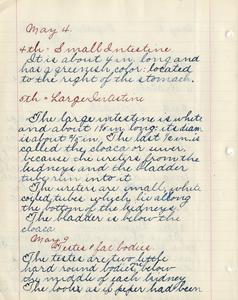 May 4.
4th - Small Intestine
It is about 4 in. long and
has a greenish color: located
to the right of the stomach.
5th = Large Intestine
The large intestine is white
and about 1 1/8 in long: its diam
is about 3/8 in. The last 1/8 in. is
called the cloaca or
because the ureters from the
kidneys and the bladder
tube run into it.
The ureters are small, white
coiled tubes which lie along
the bottom of the kidneys.
The bladder is below the
cloaca
May 9
Testes & fat bodies
The testes are two little
hard round bodies one below
the middle of each kidney
The looks as if paper had been